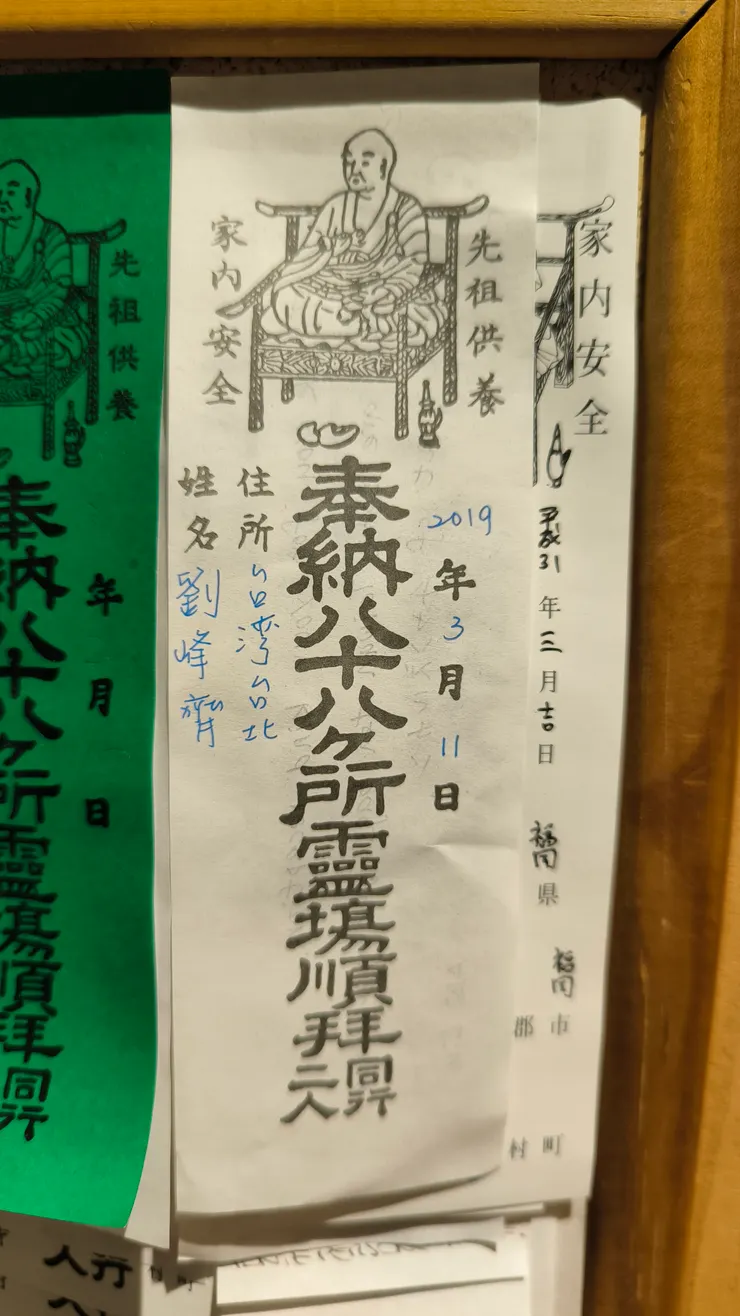 家内安全
平成31年三月吉日
福岡県
福岡市
郡
町
村
先祖供養
家内安全
2019年3月11日
奉納八十八ヶ所霊場順拝同行二人
住所台湾台北
姓名劉峰齊
先祖供養
年月日
奉納八十八ヶ所霊場順拝同行
人行